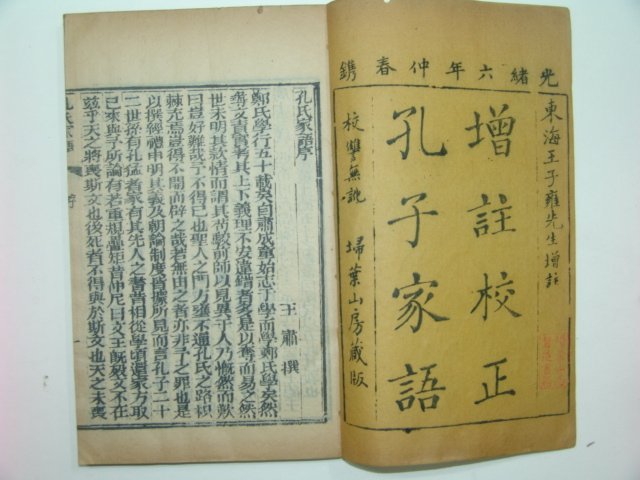 光緒六年仲春鐫
東海王子雍先生增註
增註校正
孔子家語
校讐無訛 埽葉山房藏版
孔氏家語序
王肅撰
鄭氏學行五十載矣自肅成童始志于學而學鄭氏學矣然
尋文責實考其上下義理不安違錯者多是以奪而易之然
世未明其款情而謂其苟駁前師以見異于人乃慨然而歎
曰豈好難哉予不得已也聖人之門方壅不通孔氏之路枳
棘充焉豈得不開而辟之哉若無由之者亦非予之罪也是
以撰經禮申明其義及朝論制度皆據所見而言孔子二十
二世孫有孔猛者家有其先人之書昔相從學頃還家方取
已來與予所論有若重規疊矩昔仲尼曰文王旣歿文不在
茲乎天之將喪斯文也後死者不得與於斯文也天之未喪